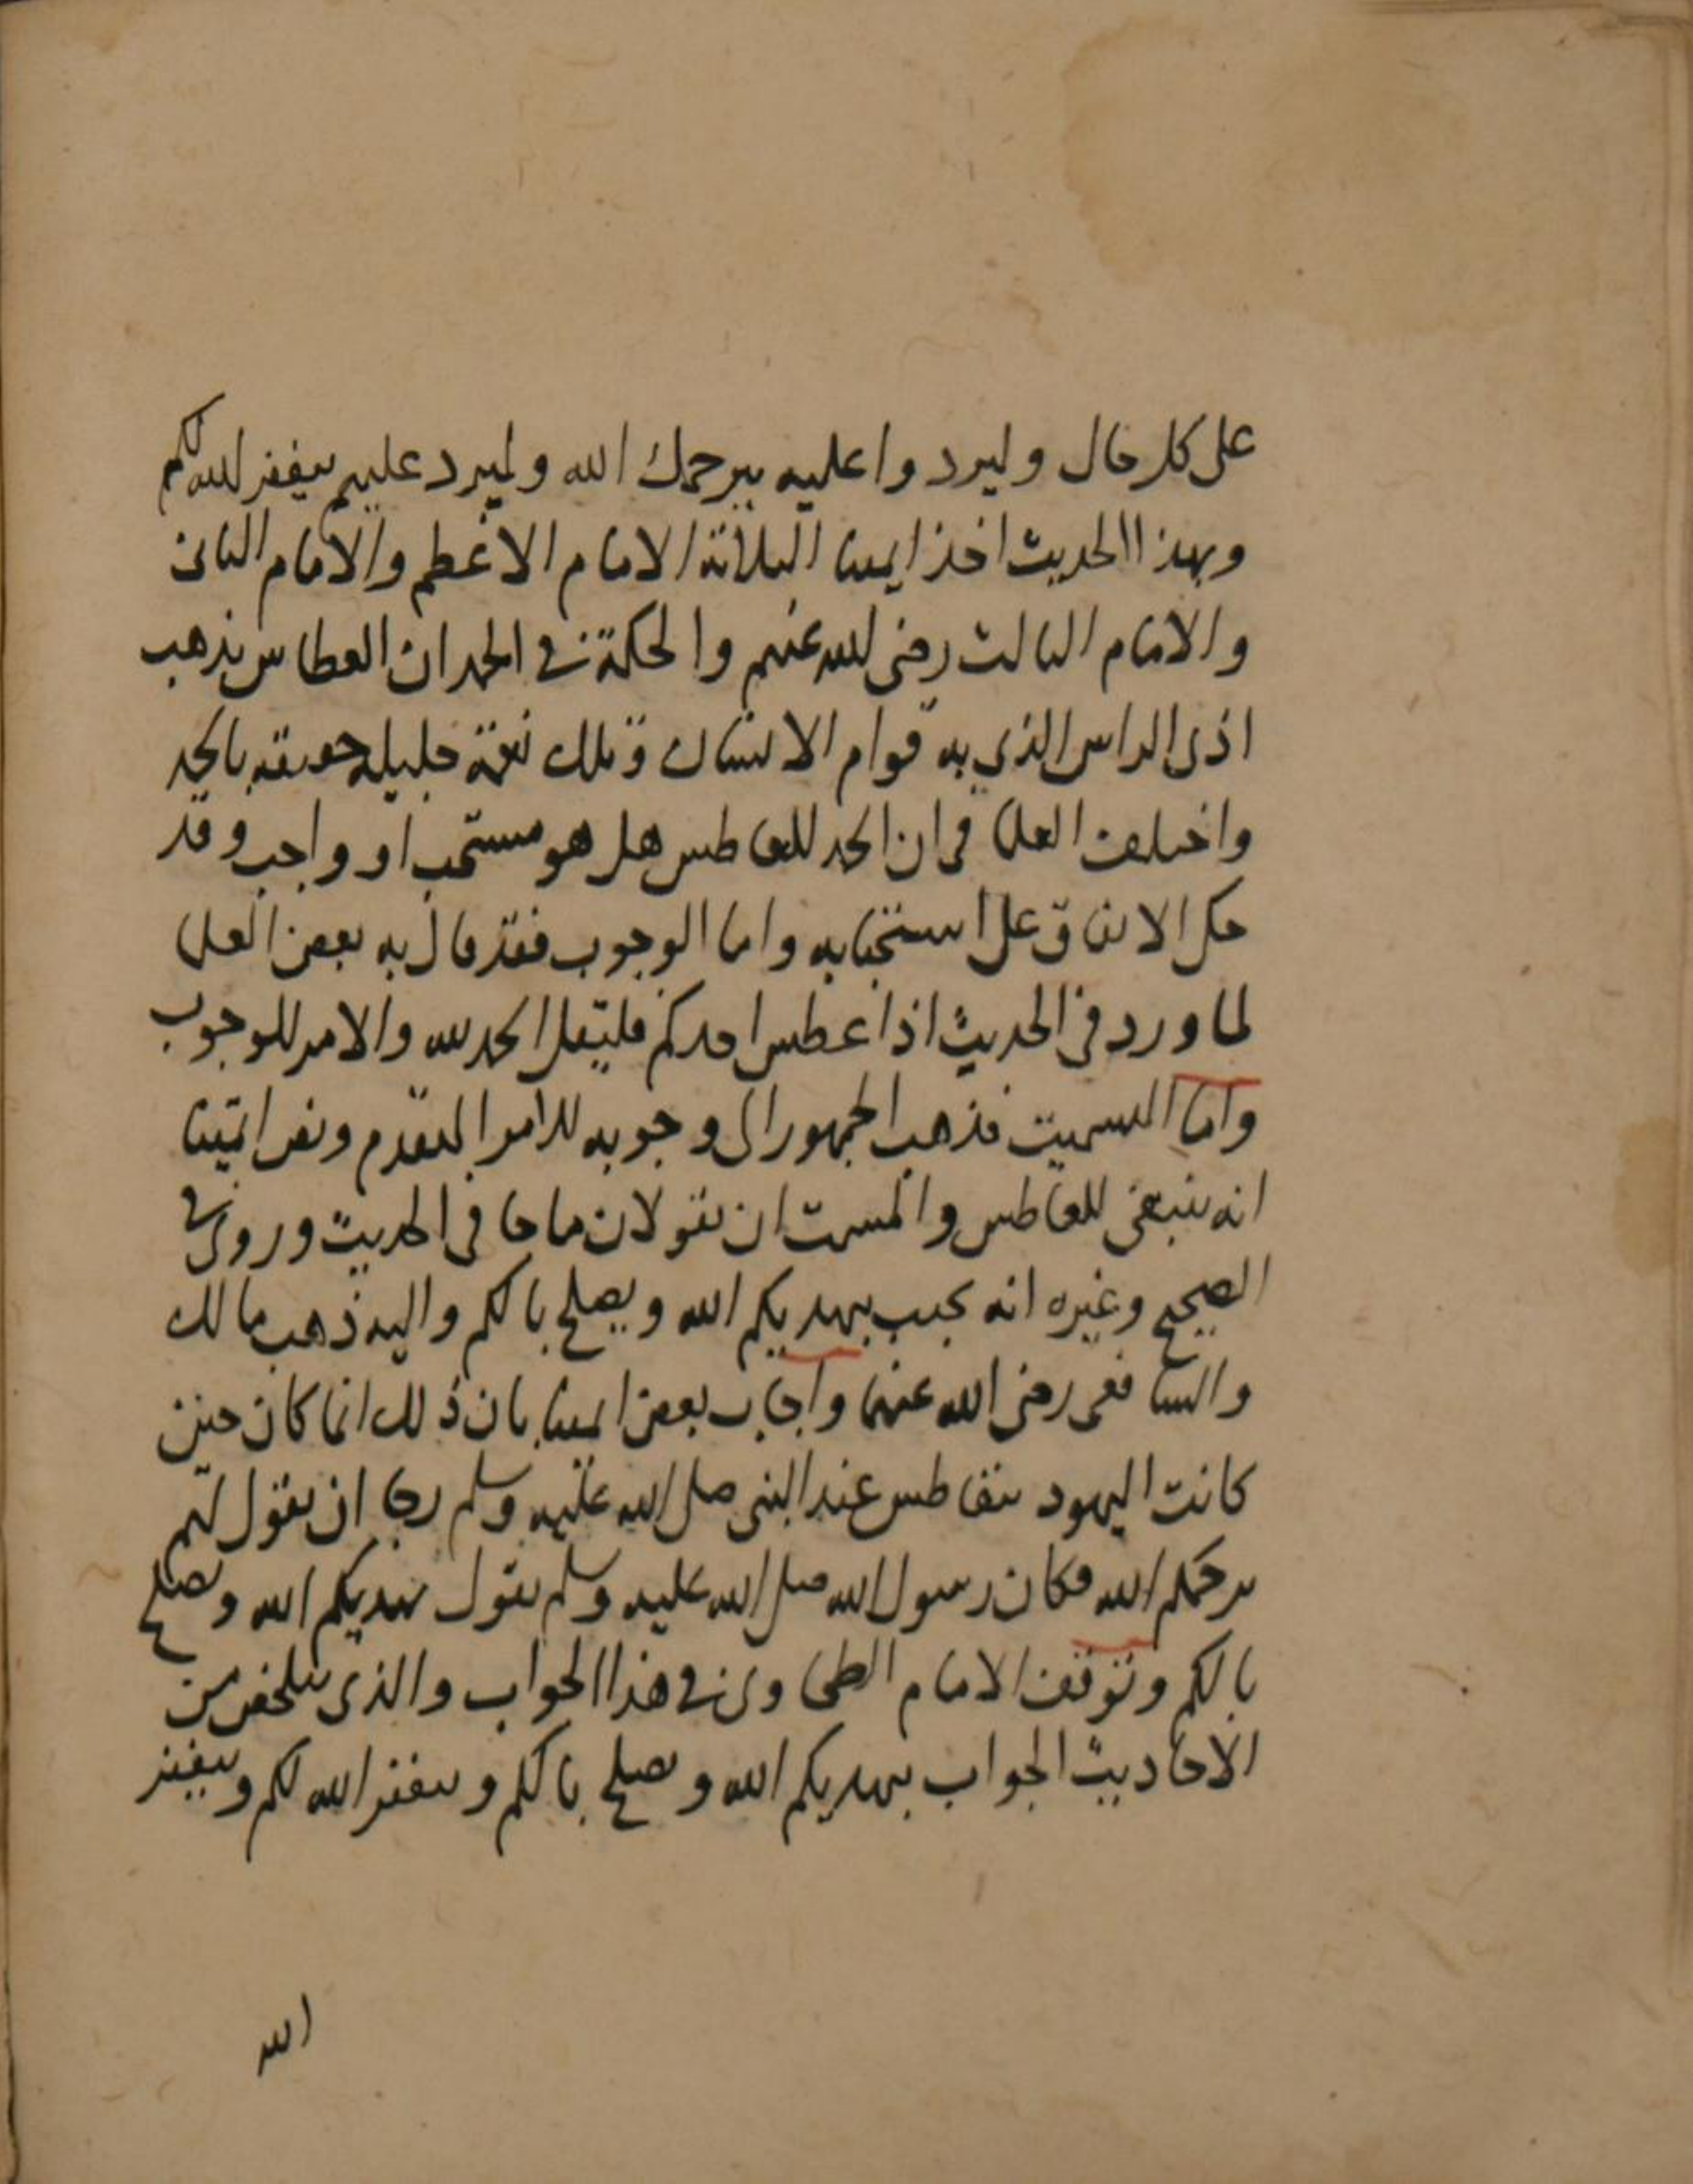 على كل حال وليردوا عليه بيرحمك الله وليرد عليهم يغفر الله لكم
وبهذا الحديث اخذ ايمتنا الثلاثة الامام الاعظم والامام الثانى
والامام الثالث رضى الله عنهم والحكمة فى الحمد ان العطاس يذهب
اذى الراس الذي به قوام الانسان وتلك نعمة جليلة حقيقة بالحمد
واختلف العلما فى ان الحمد للعاطس هل هو مستحب او واجب وقد
حكى الاتفاق على استحبابه واما الوجوب فقد قال به بعض العلما
لما ورد فى الحديث اذا عطس احدكم فليقل الحمد لله والامر للوجوب
واما التسميت فذهب الجمهور الى وجوبه للامر المتقدم ونص ايمتنا
انه ينبغى للعاطس والمسمت ان يقولان ما جا فى الحديث وروى فى
الصحيح وغيره انه يجيب بيهديكم الله ويصلح بالكم واليه ذهب مالك
والشافعى رضى الله عنهما واجاب بعض ايمتنا بان ذلك انما كان حين
كانت اليهود تتعاطس عند النبى صلى الله عليه وسلم رجا ان يقول لهم
يرحمكم الله فكان رسول الله صلى الله عليه وسلم يقول يهديكم الله ويصلح
بالكم وتوقف الامام الطحاوى فى هذا الجواب والذى يتلخص من
الاحاديث الجواب بيهديكم الله ويصلح بالكم ويغفر الله لكم ويغفر
الله